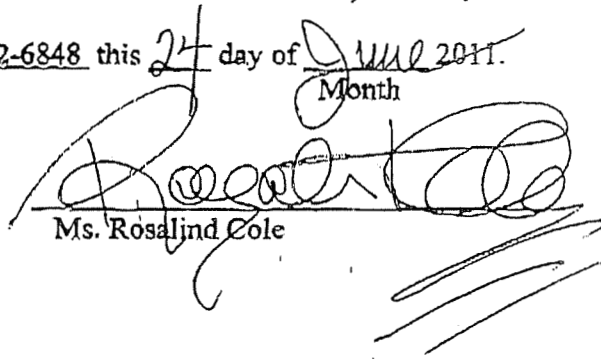 2-6848 this 24 day of June 2011.
Month
Rosalind Cole
Ms. Rosalind Cole